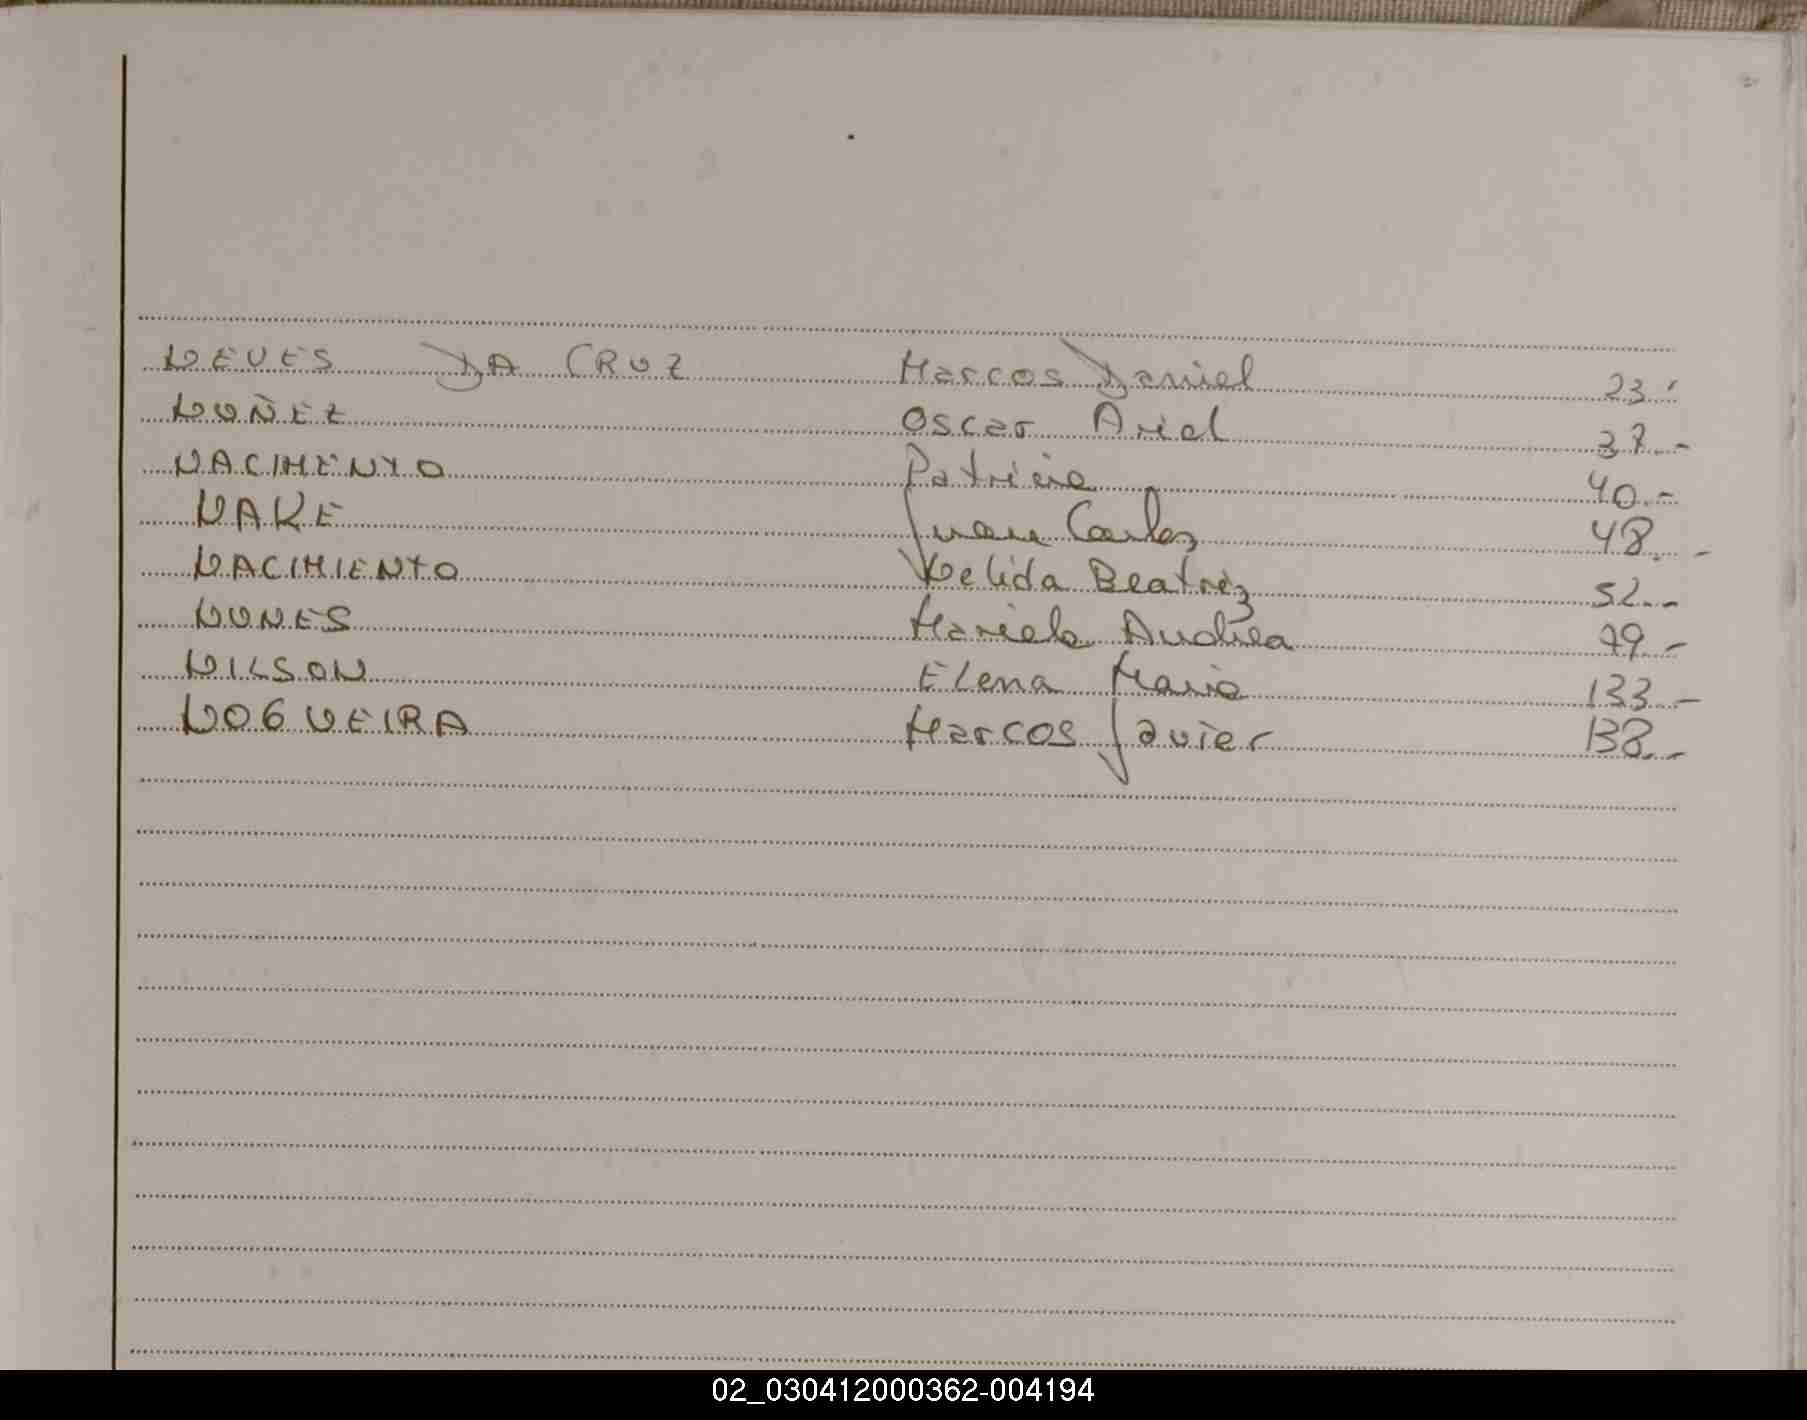 NEVES DA CRUZ Marcos Daniel 23.-
NUÑEZ Oscar Ariel 37.-
NACIMENTO Patricia 40.-
NAKE Juan Carlos 48.-
NACIMIENTO Nelida Beatriz 52.-
NUNES Mariela Andrea 79.-
NILSON Elena Maria 133.-
NOGUEIRA Marcos Javier 138.-
02_030412000362-004194